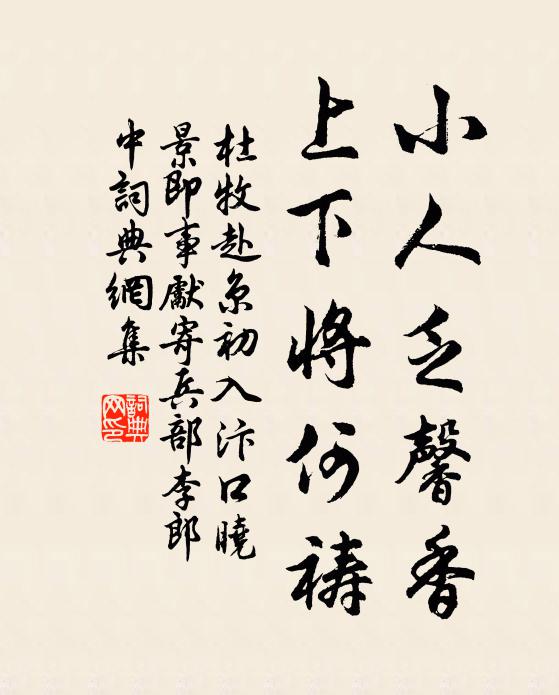 小人乏馨香
上下將何禱
杜牧赴京初入汴口曉
景即事獻寄兵部李郎
中詞典網集
詞典
网印